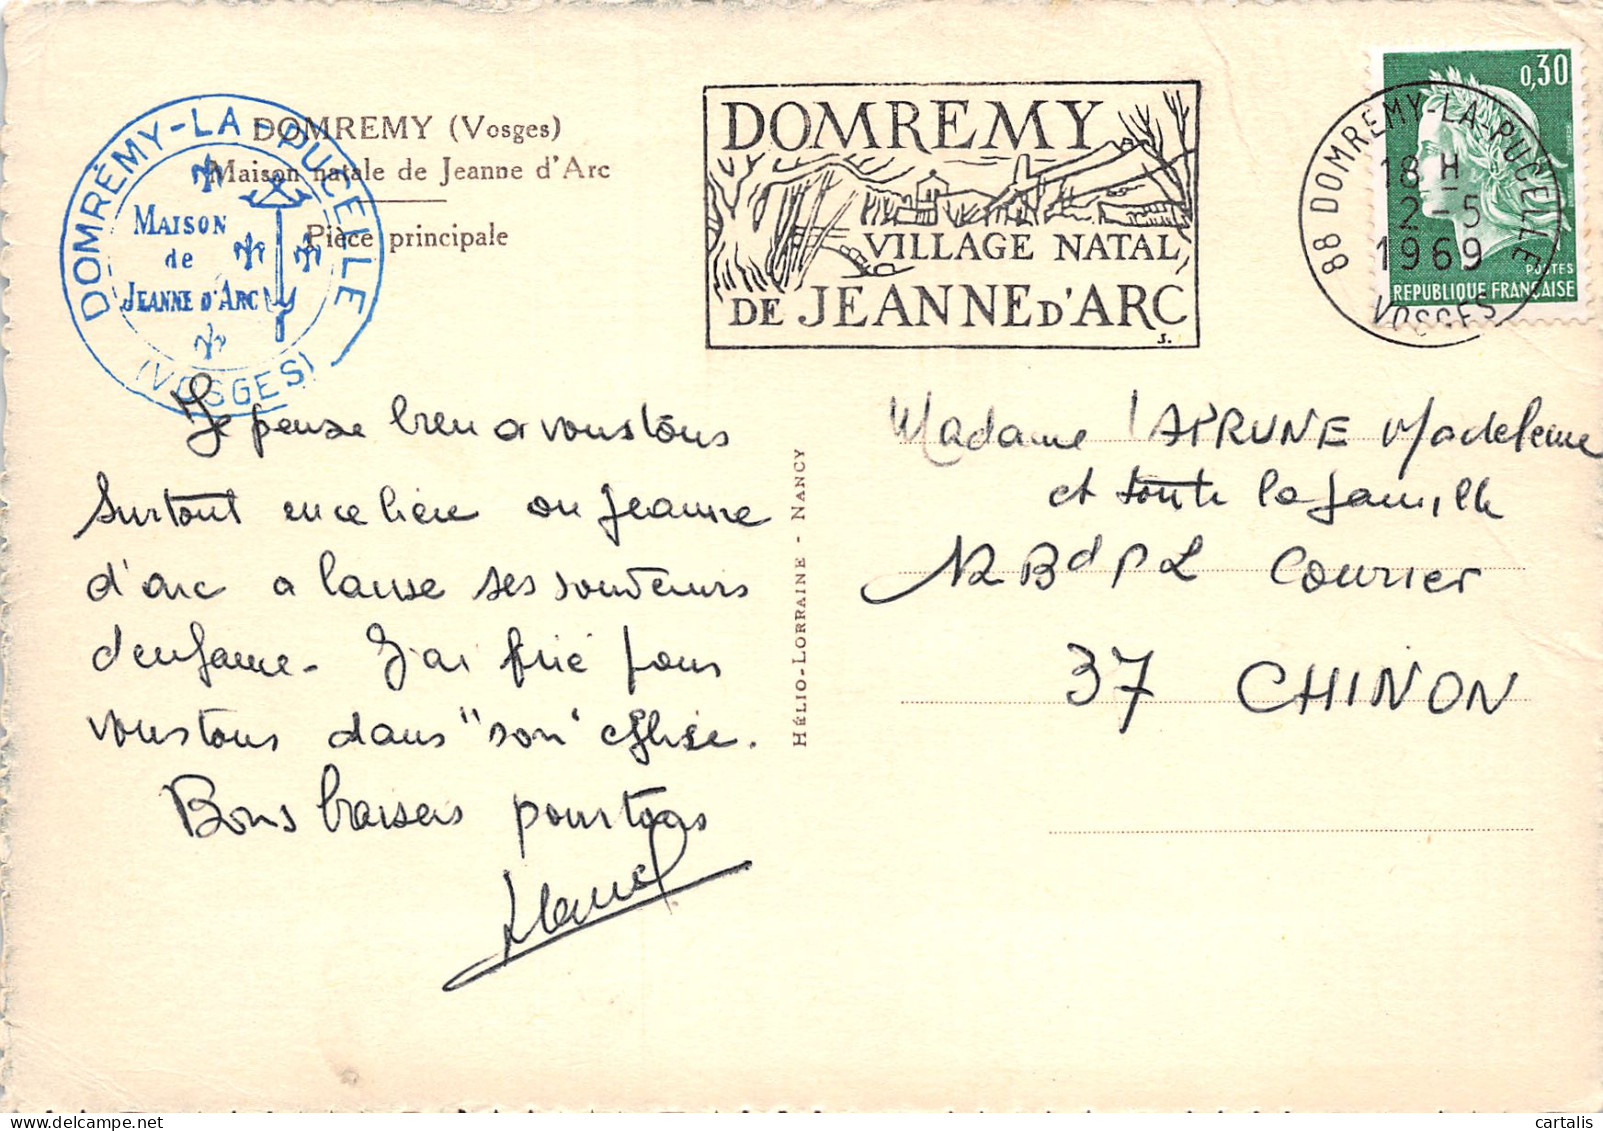 DOMREMY (Vosges)
Maison natale de Jeanne d'Arc
Pièce principale
DOMRÉMY-LA-PUCELLE
(VOSGES)
MAISON
de
JEANNE D'ARC
DOMREMY
VILLAGE NATAL
DE JEANNE D'ARC
J.
88 DOMREMY-LA-PUCELLE
18 H
2-5
1969
VOSGES
0,30
POSTES
REPUBLIQUE FRANÇAISE
Je pense bien a vous tous
Surtout en ce lieu ou Jeanne
d'arc a laissé ses souvenirs
d'enfance - J'ai prié pour
vous tous dans "son" eglise.
Bons baisers pour tous
HÉLIO-LORRAINE - NANCY
Madame LAPRUNE Madeleine
et toute la famille
12 Bd P L Courier
37 CHINON
cartalis